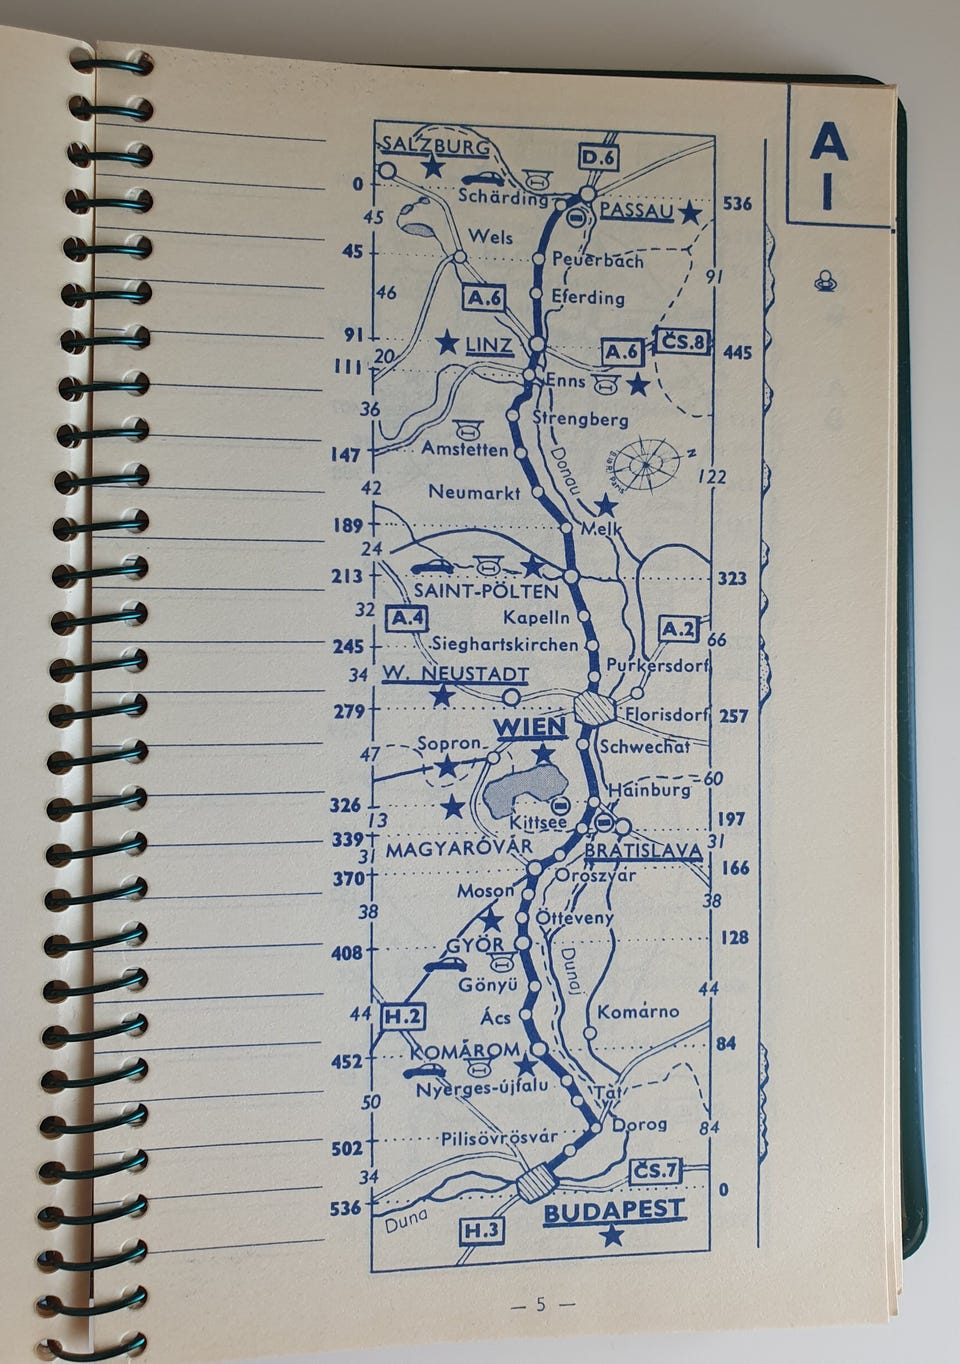 A
I
SALZBURG
D.6
0
Schärding
PASSAU
536
45
Wels
45
Peuerbach
91
46
A.6
Eferding
91
LINZ
A.6
ČS.8
445
20
111
Enns
36
Strengberg
147
Amstetten
Donau
N
122
42
Neumarkt
189
Melk
24
213
323
SAINT-PÖLTEN
32
A.4
Kapelln
A.2
66
245
Sieghartskirchen
34
W. NEUSTADT
Purkersdorf
279
Florisdorf
257
WIEN
47
Sopron
Schwechat
60
Hainburg
326
13
Kittsee
197
339
31
MAGYARÓVÁR
BRATISLAVA
31
370
Oroszvár
166
Moson
38
38
Ötteveny
408
GYÖR
128
Gönyü
Dunaj
44
44
H.2
Ács
Komárno
452
KOMÁROM
84
Nyerges-újfalu
50
Tát
Dorog
84
502
Pilisövrösvár
34
ČS.7
536
0
Duna
BUDAPEST
H.3
— 5 —